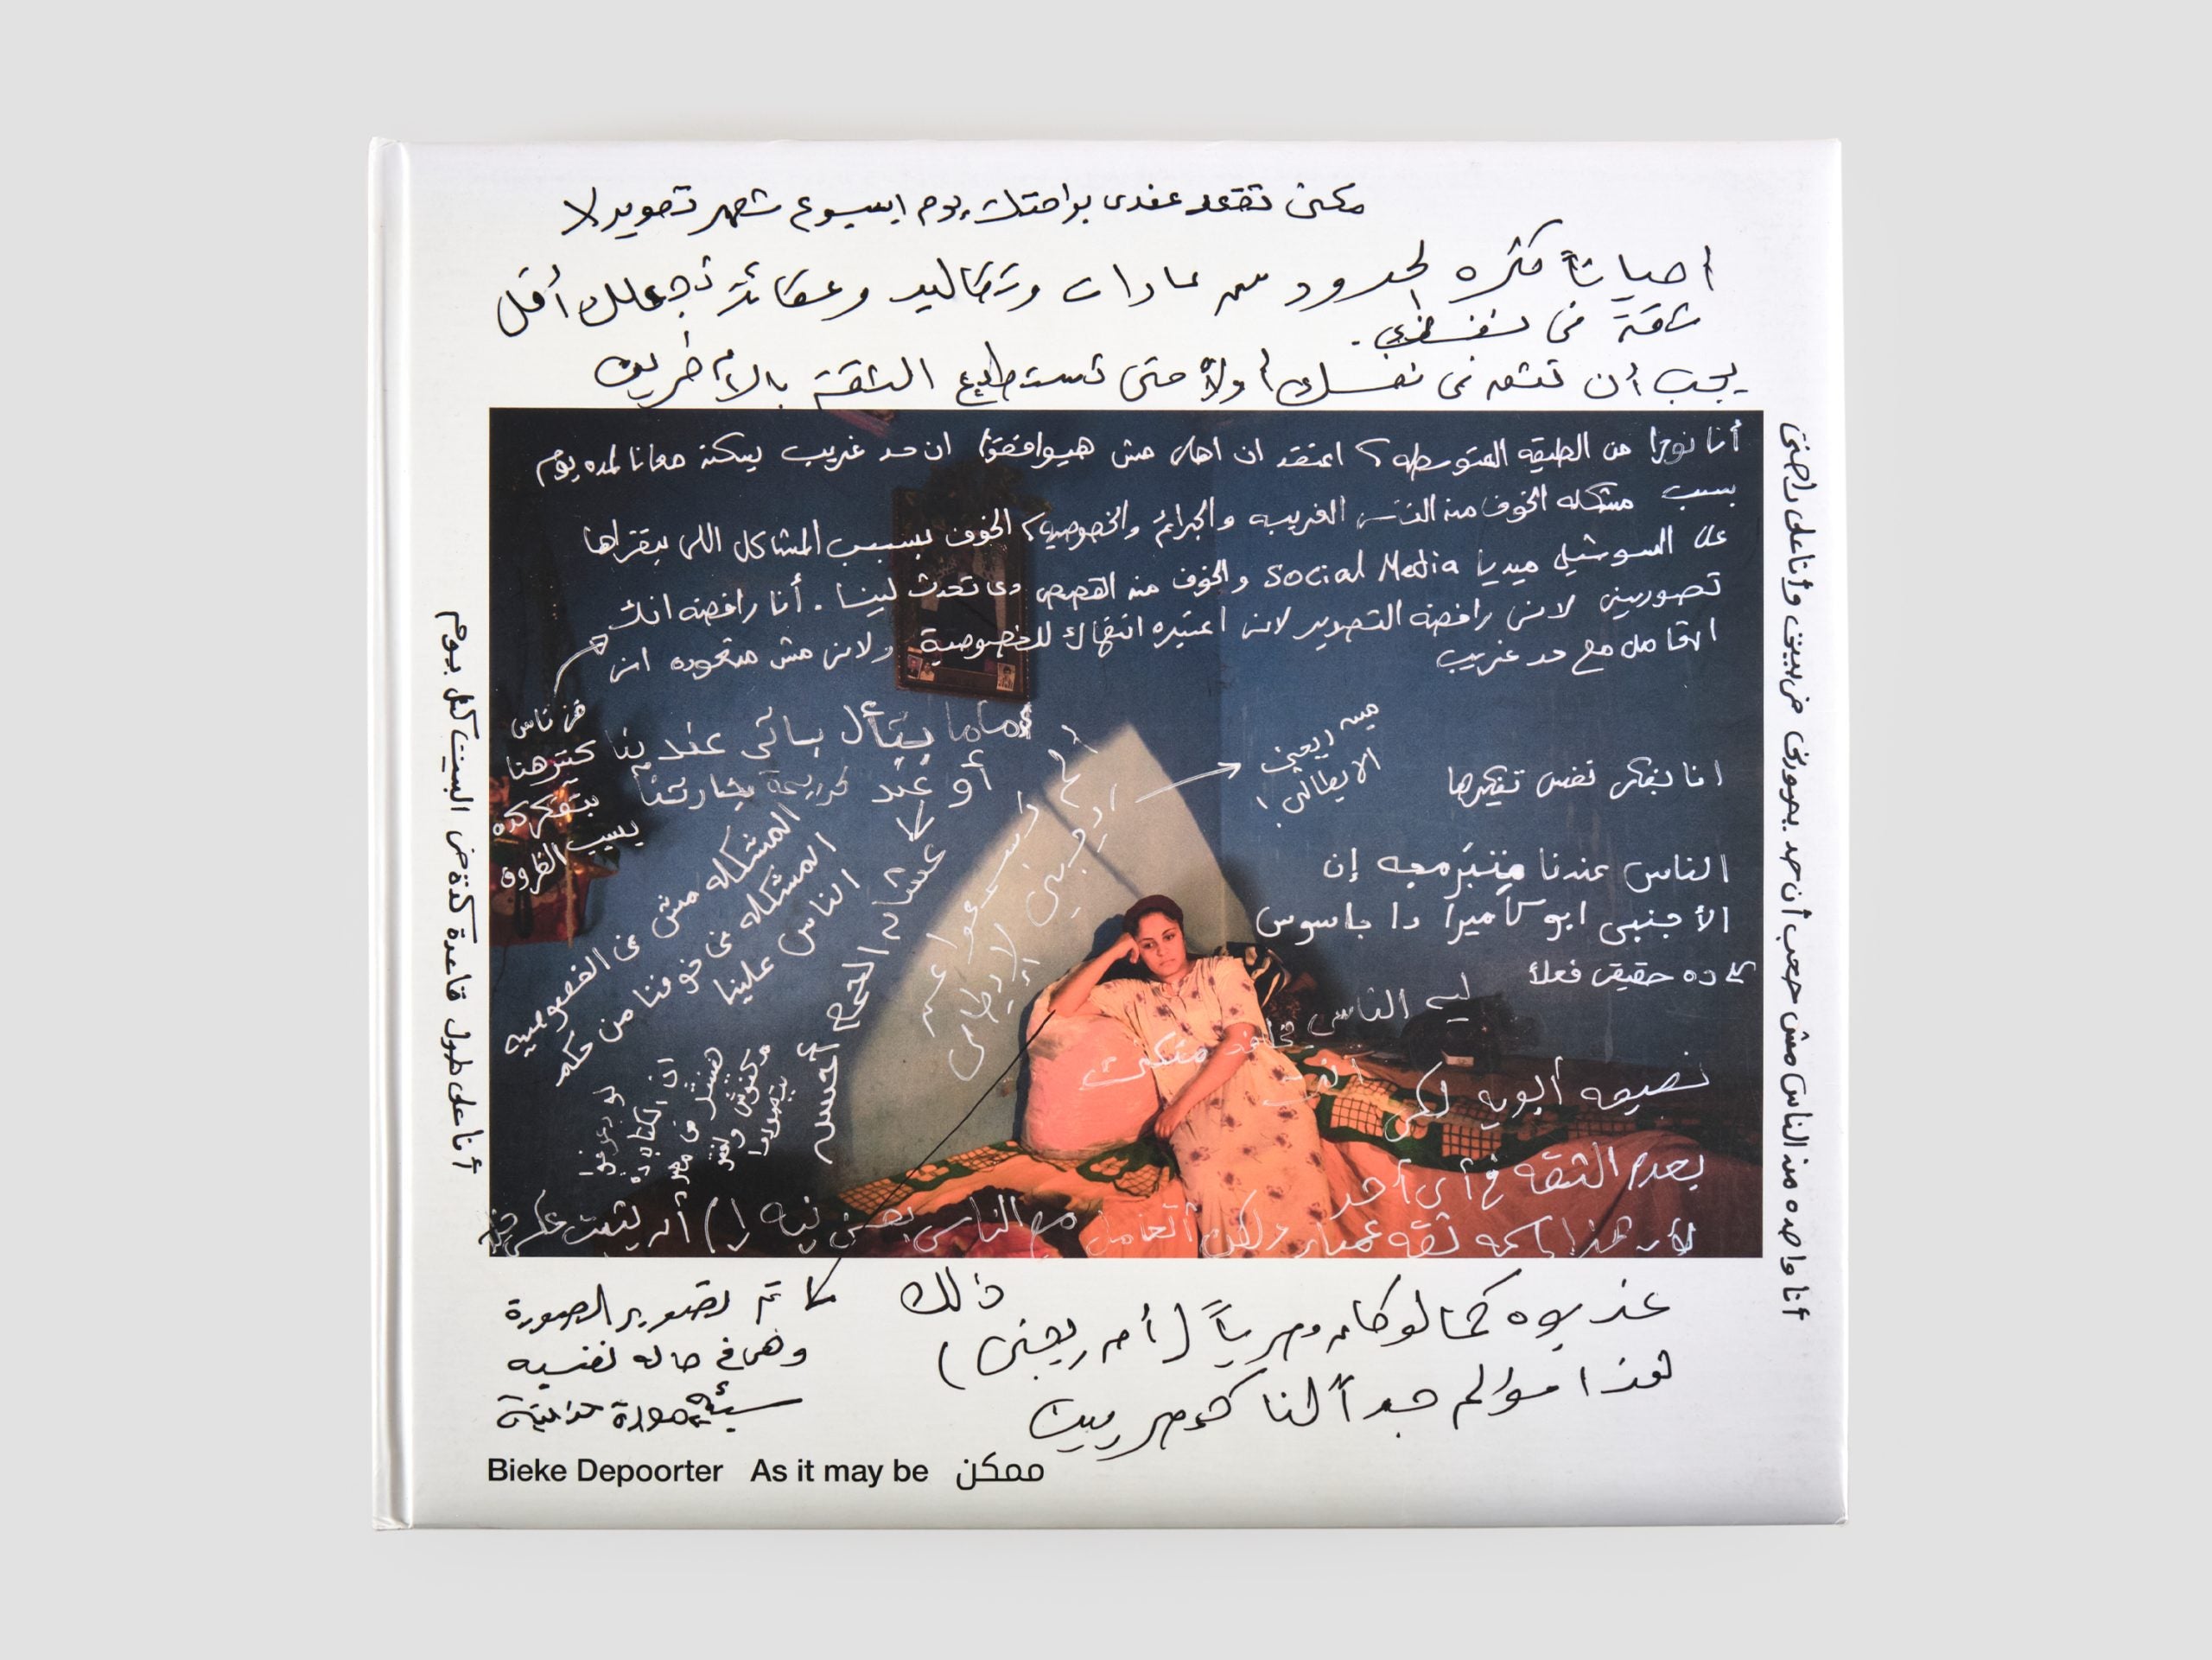 ممكن تقعد عندى براحتك يوم اسبوع شهر تصوير لا
احياناً كثره الحدود من عادات وتقاليد وعقائد تجعلك أقل
ثقة فى نفسك.
يجب أن تثق فى نفسك أولاً حتى تستطيع الثقة بالآخرين
أنا نورا من الطبقه المتوسطه؟ اعتقد ان اهلى مش هيوافقوا ان حد غريب يسكن معانا لمده يوم
بسبب مشكله الخوف من الناس الغريبه والجرائم والخصوصيه؟ الخوف بسبب المشاكل اللى بيقراها
على السوشيل ميديا Social Media والخوف من القصص دى تحدث لينا. أنا رافضه انك
تصورينى لانى رافضة التصوير لانى اعتبره انتهاك للخصوصية ولانى مش متعوده انى
اتعامل مع حد غريب
فى ناس
كتير هنا
بتفكر كده
بسبب الظروف
ماما بتسأل باتى عندينا
أو عند كريمة جارتنا
المشكله مش فى الخصوصيه
المشكله فى خوفنا من حكم
الناس علينا
ألم تسمعوا عن
ريجينى الإيطالى
ميه ريجينى
الايطالى!
انا بفكر نفس تفكيرها
الناس عندنا متبرمجه إن
الأجنبى ابو كاميرا دا جاسوس
ده حقيقى فعلاً
ليه الناس
نصيحه أبويه لكى
بعدم الثقه فى أى أحد
ولكن أتعامل مع الناس بحسن نيه إلى أن يثبت عكس
ذلك
عذبوه كما لو كان مصرياً (أم ريجينى)
هذا مؤلم جداً لنا كمصريين
تم تصوير الصورة
وهى فى حاله نفسيه
سيئة صورة حزينة
أنا على طول قاعدة كدة فى البيت كل يوم
أنا واحده من الناس مش حعب أن حد يصورنى فى بيتى وأنا على راحتى
Bieke Depoorter As it may be ممكن